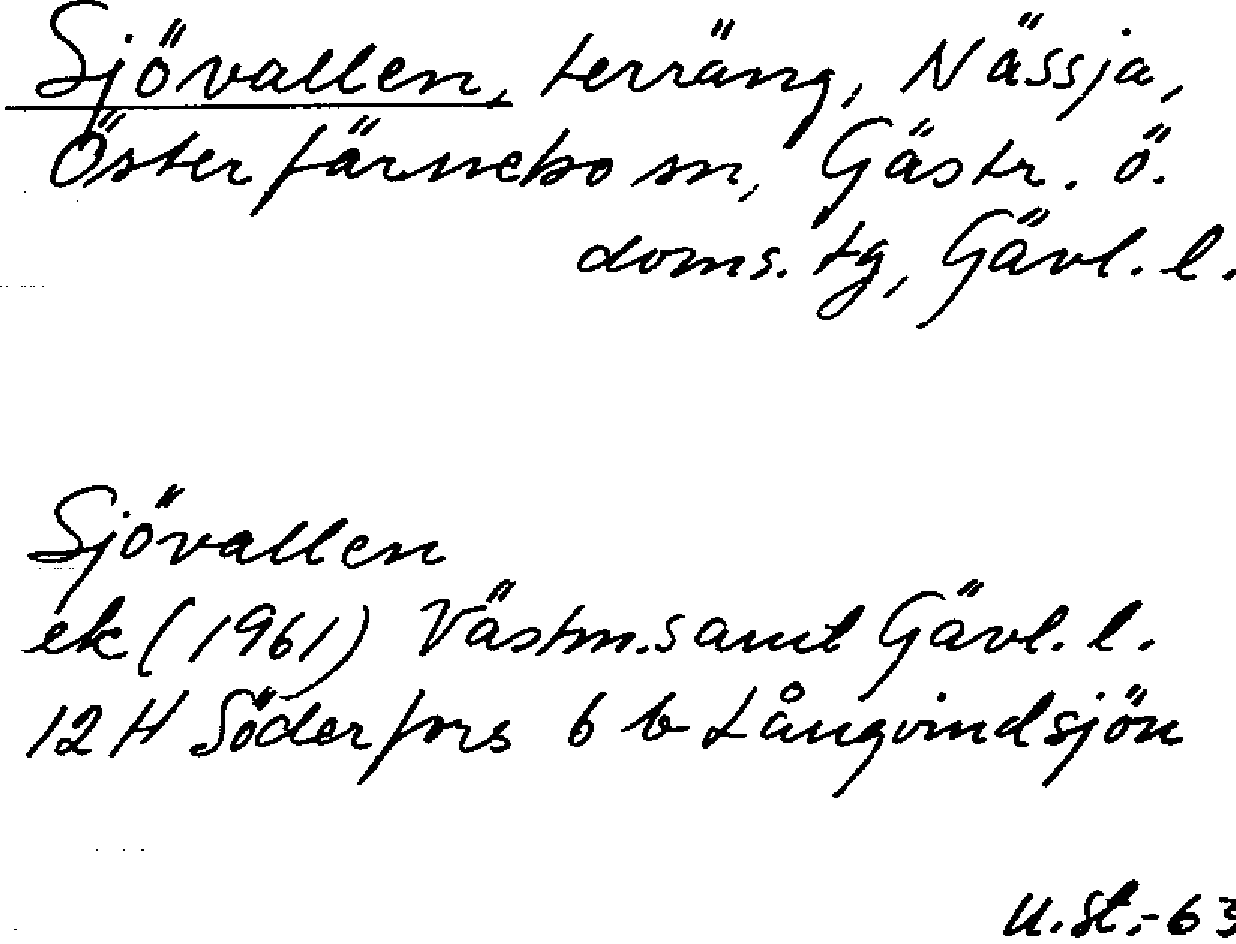 Sjövallen, terräng, Nässja,
Österfärnebo sn, Gästr. ö.
doms. tg, Gävl. l.
Sjövallen
ek (1961) Västm. samt Gävl. l.
12 H Söderfors 6 b Långvindsjön
U. St. -63